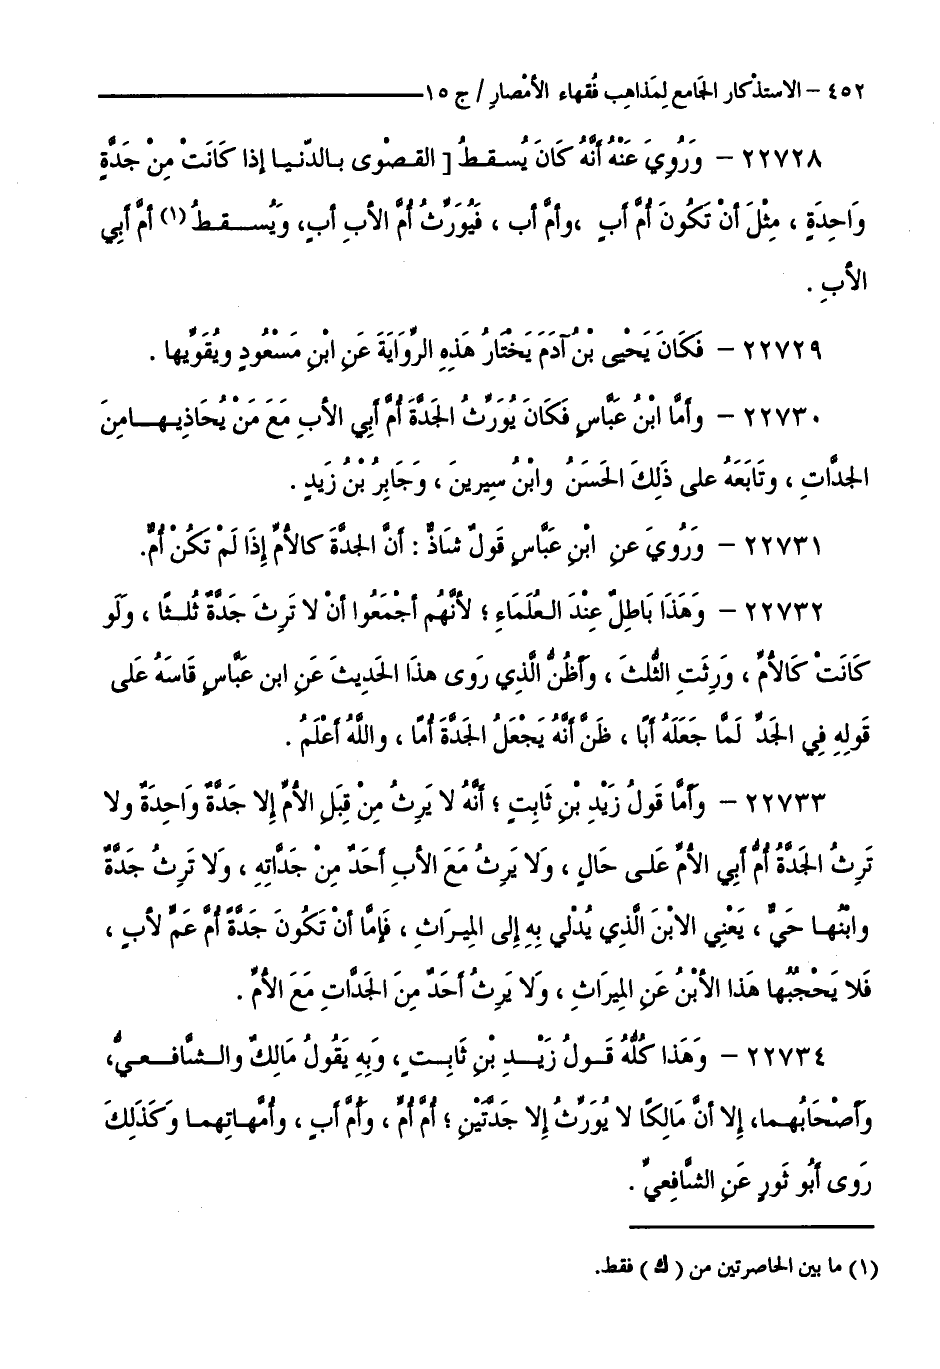 ٤٥٢ – الاستذْكار الجَامع لِمَذاهِب فُقهاء الأمْصار / ج ١٥
٢٢٧٢٨ – وَرُوِيَ عَنْهُ أَنَّهُ كَانَ يُسقـطُ [ القصْوى بـالدّنيـا إذا كَانَتْ مِنْ جَدَّةٍ
وَاحِدَةٍ ، مِثْلَ أنْ تَكُونَ أمَّ أبٍ ،وأمَّ أب ، فَيُورَّثُ أمَّ الأبِ أبٍ، وَيُســقـطُ(١) أمَّ أبِي
الأبِ .
٢٢٧٢٩ – فَكَانَ يَحْيى بْنُ آدَمَ يَخْتَارُ هَذِهِ الرِّوَايَةَ عَنِ ابْنِ مَسْعُودٍ ويُقَوِّيها .
٢٢٧٣٠ – وأمَّا ابْنُ عَبَّاسٍ فَكَانَ يُورِّثُ الجَدَّةَ أمَّ أبِي الأبِ مَعَ مَنْ يُحَاذِيهــامِنَ
الجدَّاتِ ، وتَابَعَهُ على ذَلِكَ الحَسَنُ وابْنُ سِيرينَ ، وَجَابِرُ بْنُ زَيدٍ .
٢٢٧٣١ – وَرُوِيَ عَنِ ابْنِ عَبَّاسٍ قَولٌ شاذٌّ : أنَّ الجدَّةَ كالأمِّ إِذَا لَمْ تَكُنْ أمٌّ.
٢٢٧٣٢ – وَهَذَا بَاطِلٌ عِنْدَ العُلَمَاءِ ؛ لأنَّهُم أجْمَعُوا أنْ لا تَرِثَ جَدَّةٌ ثُلـثًا ، وَلَو
كَانَتْ كَالأمِّ ، وَرِثَتِ الثُّلثَ ، وَأَظُنُّ الَّذِي رَوى هذا الحَدِيثَ عَنِ ابن عَبَّاسٍ قَاسَهُ عَلى
قَولِهِ فِي الجَدِّ لَمَّا جَعَلَهُ أبًا ، ظَنَّ أنَّهُ يَجْعَلُ الجَدَّةَ أمًا ، واللَّهُ أعْلَمُ .
٢٢٧٣٣ – وَأمَّا قَولُ زَيْدِ بْنِ ثَابِتٍ ؛ أنَّهُ لا يَرِثُ مِنْ قِبَلِ الأمِّ إلا جَدَّةٌ وَاحِدَةٌ ولا
تَرِثُ الجَدَّةُ أُمُّ أبِي الأمِّ عَلـى حَالٍ ، وَلا يَرِثُ مَعَ الأبِ أحَدٌ مِنْ جَدَّاتِهِ ، وَلا تَرِثُ جَدَّةٌ
وابْنُهـا حَيٌّ ، يَعْنِي الابْنَ الَّذِي يُدْلي بِهِ إلى المِيـرَاثِ ، فَإمَّا أنْ تَكُونَ جَدَّةً أمَّ عَمٍّ لأبٍ ،
فَلا يَحْجُبُها هَذا الأبْنُ عَنِ المِيرَاثِ ، وَلا يَرِثُ أحَدٌ مِنَ الجَدَّاتِ مَعَ الأمِّ .
٢٢٧٣٤ – وَهَذا كُلُّهُ قَـولُ زَيْـدِ بْنِ ثَابِـتٍ ، وَبِهِ يَقُولُ مَالِكٌ والـشَّافـعـيُّ،
وَأصْحَابُهـما، إلا أنَّ مَالِكًا لا يُورِّثُ إلا جَدَّتَيْنِ ؛ أمَّ أمٍّ ، وَأمَّ أبٍ ، وأمَّهاتِهمـا وَكَذَلِكَ
رَوى أبُو ثَورٍ عَنِ الشَّافِعيِّ .
(١) ما بين الحاصرتين من ( ك ) فقط.